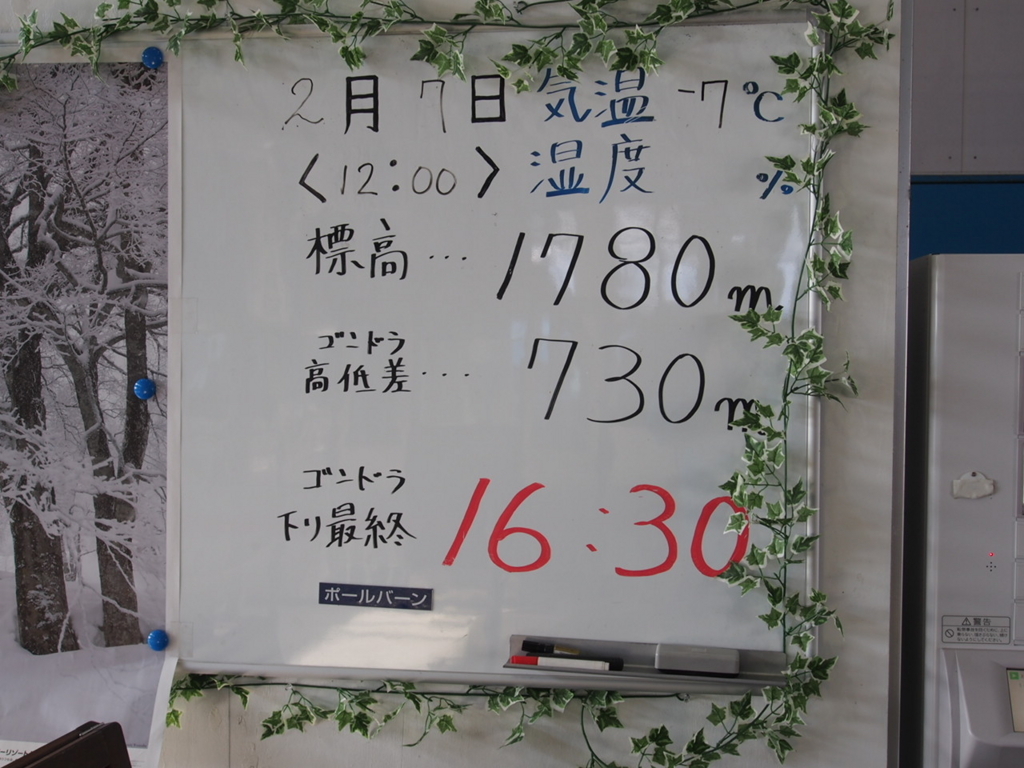 2月7日 気温 -7℃
<12:00> 湿度 %
標高… 1780m
ゴンドラ
高低差… 730m
ゴンドラ
下り最終 16:30
ポールバーン
警告